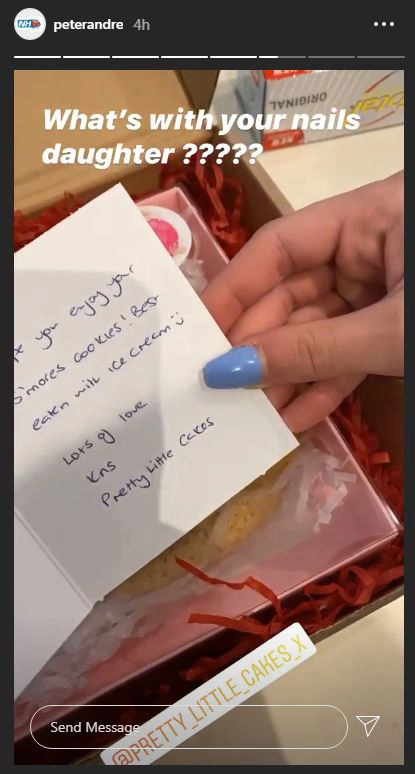 NHS
peterandre 4h
What's with your nails
daughter ?????
ORIGINAL
NEW
you enjoy your
S'mores cookies! Best
eaten with ice cream
Lots of love
Kns
Pretty Little Cakes
@PRETTY_LITTLE_CAKES_X
Send Message